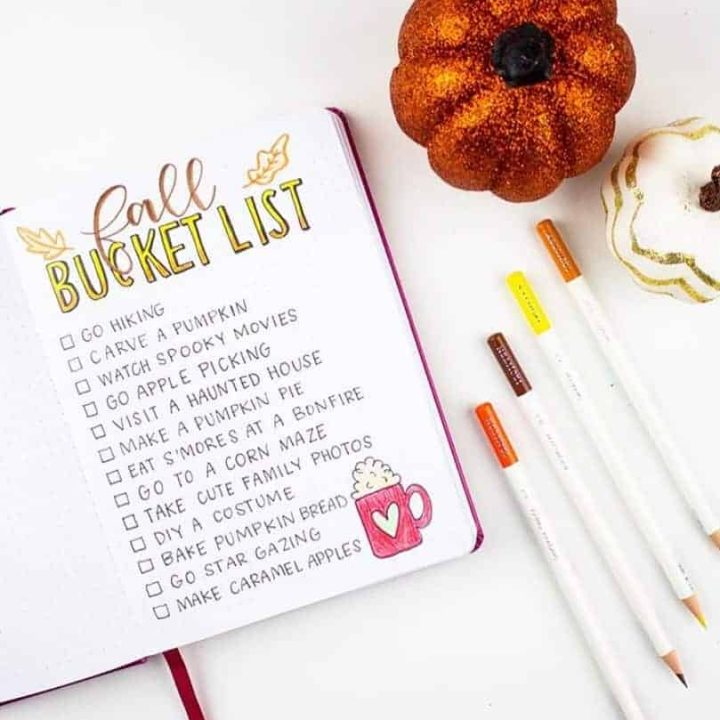 fall
BUCKET LIST
GO HIKING
CARVE A PUMPKIN
WATCH SPOOKY MOVIES
GO APPLE PICKING
VISIT A HAUNTED HOUSE
MAKE A PUMPKIN PIE
EAT S'MORES AT A BONFIRE
GO TO A CORN MAZE
TAKE CUTE FAMILY PHOTOS
DIY A COSTUME
BAKE PUMPKIN BREAD
GO STAR GAZING
MAKE CARAMEL APPLES